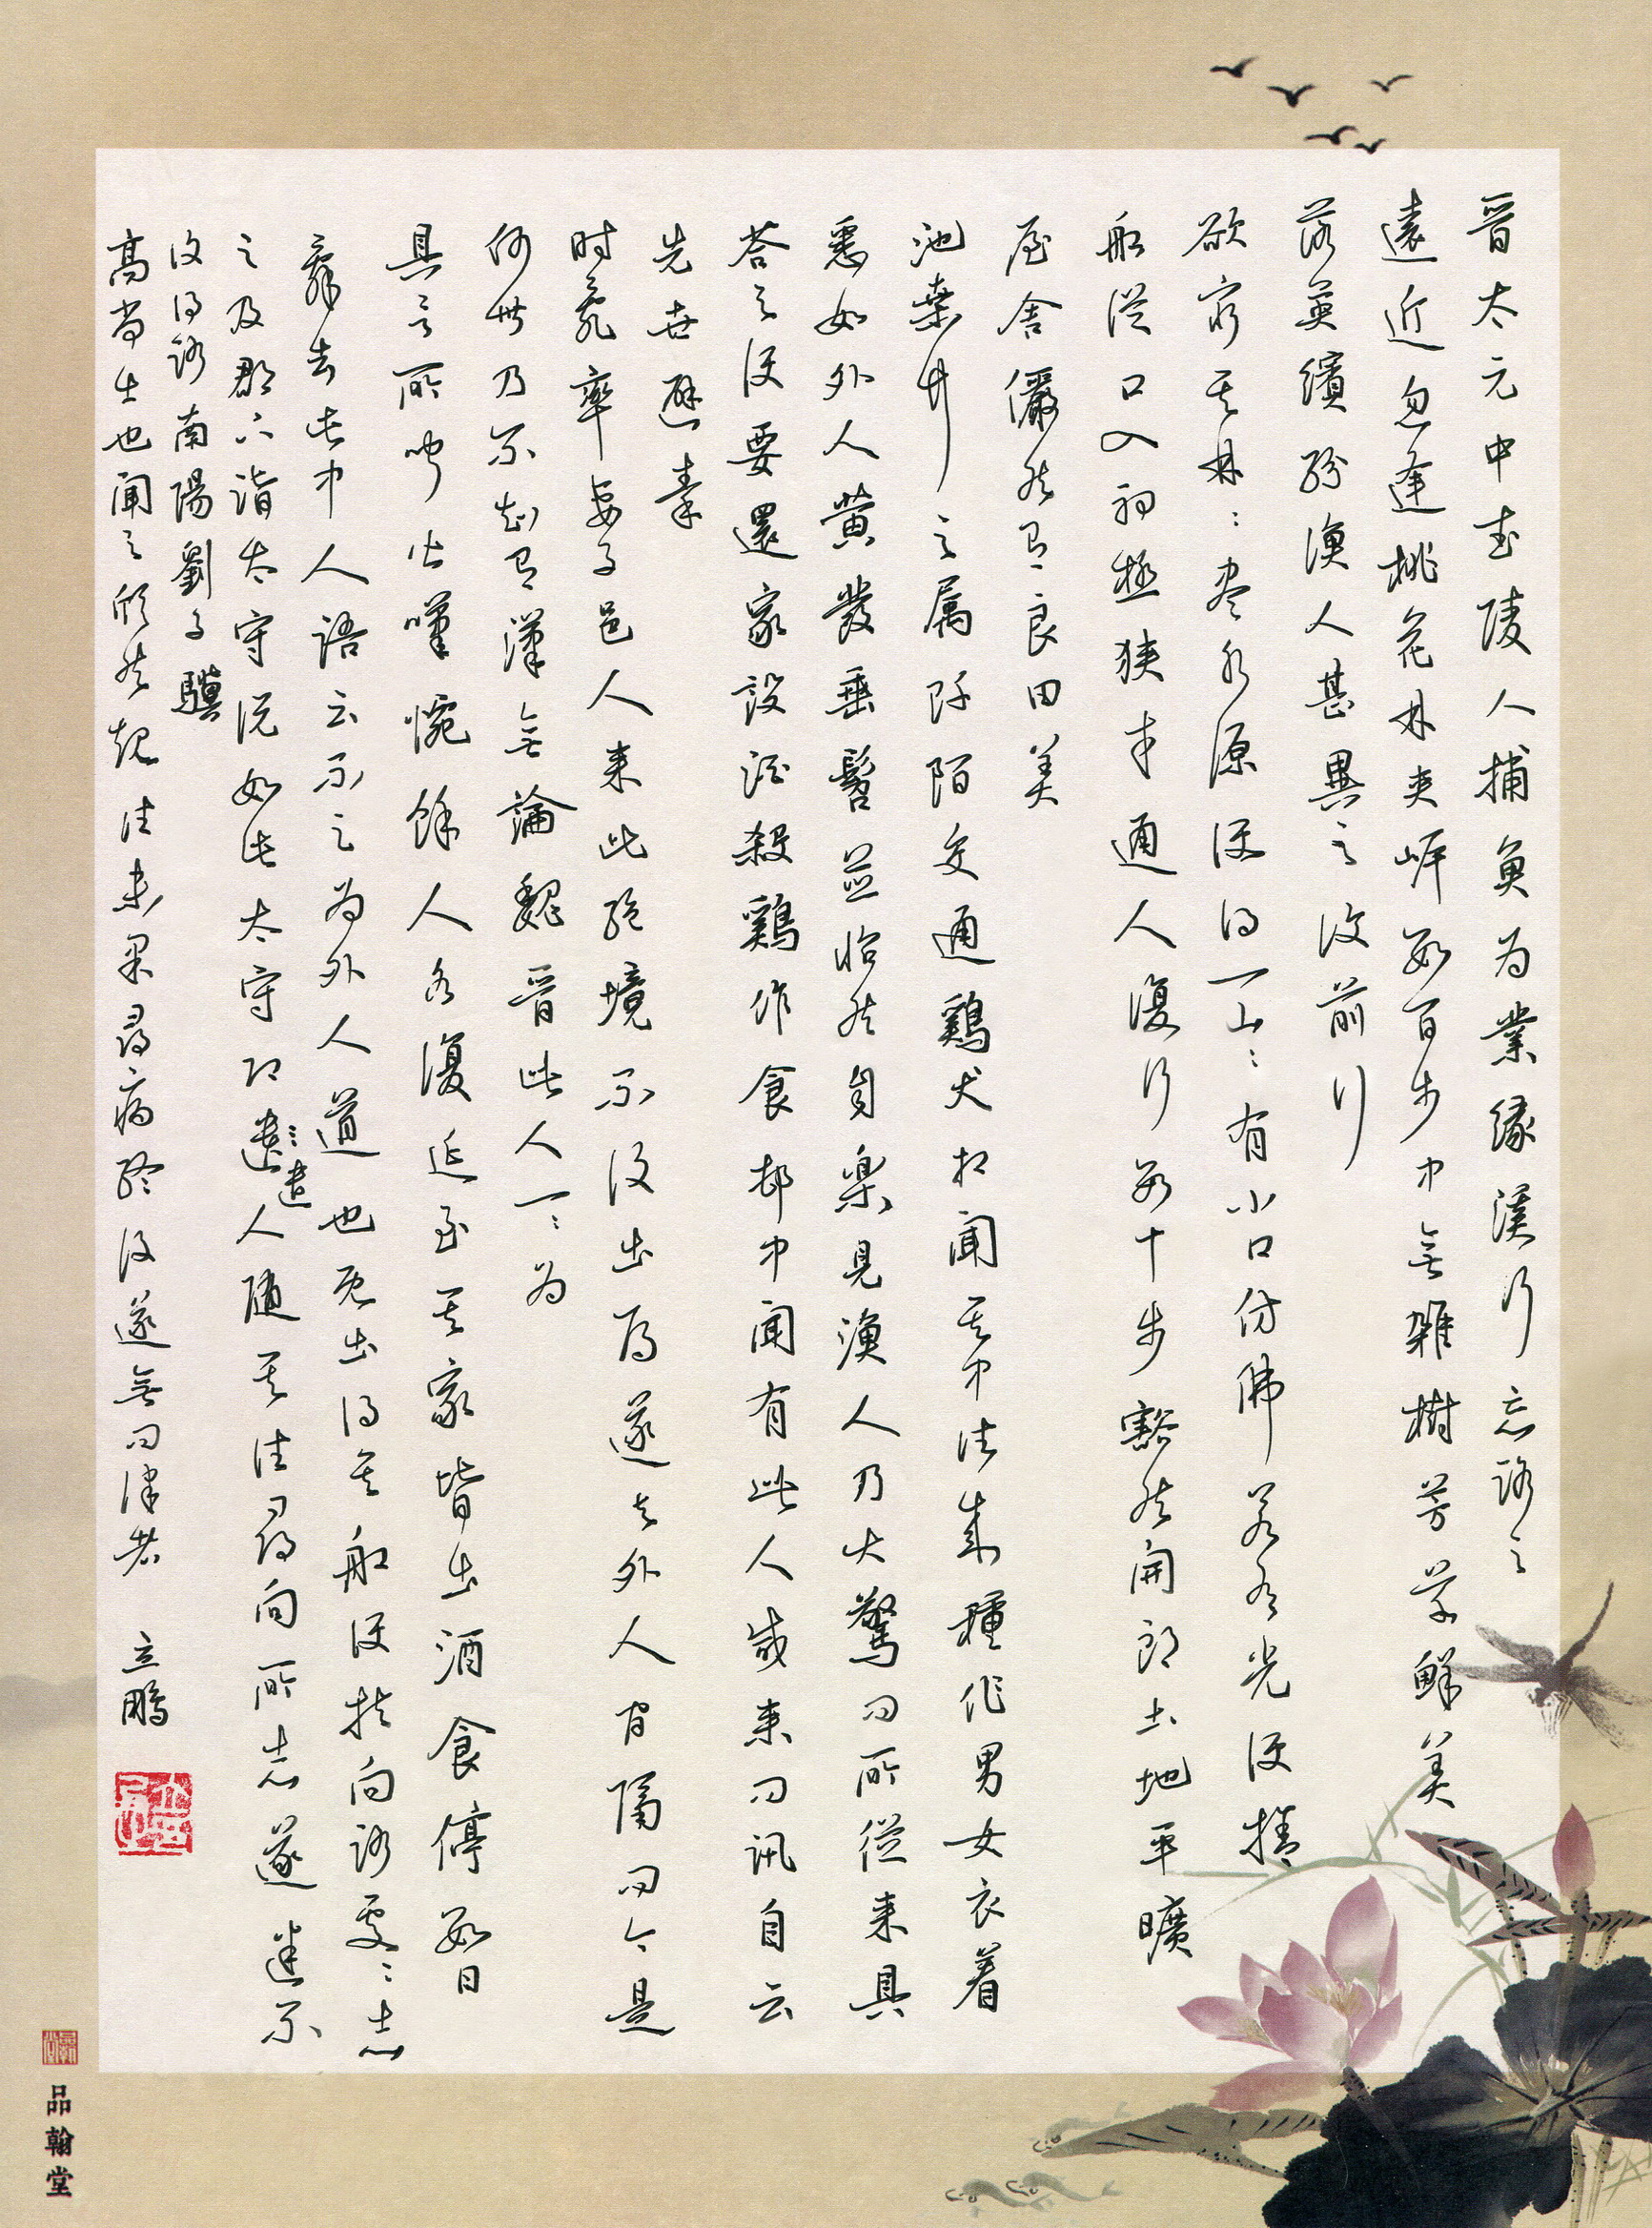 晉太元中武陵人捕魚为業緣溪行忘路之
遠近忽逢桃花林夹岸数百步中無雜樹芳草鮮美
落英繽紛渔人甚異之復前行
欲窮其林：尽水源便得一山：有小口仿佛若有光便捨
船從口入初極狭才通人復行数十步豁然開朗土地平曠
屋舍儼然有良田美
池桑竹之属阡陌交通鷄犬相聞其中往来種作男女衣着
悉如外人黄发垂髫並怡然自樂見渔人乃大驚问所從来具
答之便要還家設酒殺鷄作食邨中聞有此人咸来问訊自云
先世避秦
时亂率妻子邑人来此绝境不復出焉遂与外人间隔问今是
何世乃不知有漢無論魏晉此人一：为
具言所闻皆嘆惋餘人各復延至其家皆出酒食停数日
辞去此中人語云不足为外人道也既出得其船便扶向路处：志
之及郡下詣太守说如此太守即遣人随其往尋向所志遂迷不
遣
復得路南陽劉子驥
高尚士也聞之欣然规往未果尋病终後遂無问津者
立鹏
品翰堂